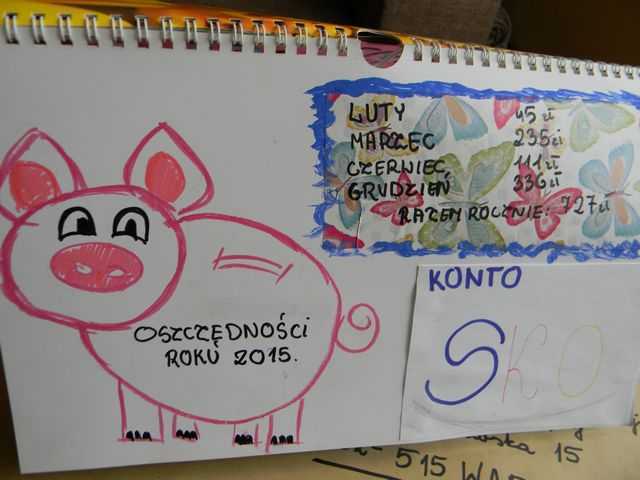 LUTY 45 zł
MARZEC 235 zł
CZERWIEC 111 zł
GRUDZIEŃ 336 zł
RAZEM ROCZNIE: 727 zł
KONTO
SKO
OSZCZĘDNOŚCI
ROKU 2015.
15
515